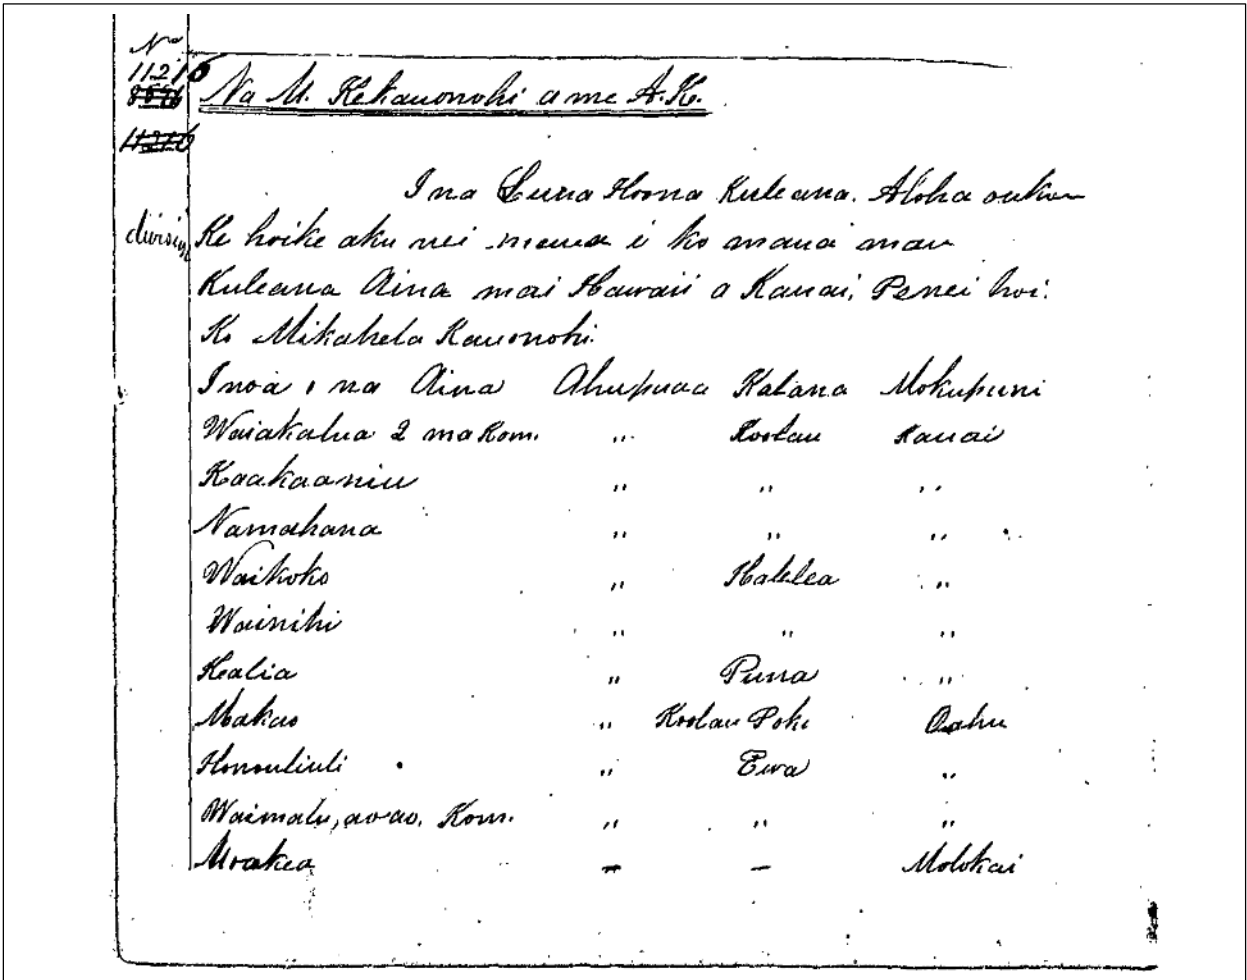 No
11216
8516
11216
Na M. Kekauonohi a me A.K.
I na Luna Hoona Kuleana. Aloha oukou
Ke hoike aku nei maua i ko maua mau
Kuleana Aina mai Hawaii a Kauai, Penei hoi.
Ko Mikahela Kauonohi.
Inoa o na Aina Ahupuaa Kalana Mokupuni
Waiakalua 2 ma Kom. " Koolau Kauai
Kaakaaniu " " "
Namahana " " "
Waikoko " Halelea "
Wainihi " " "
Kealia " Puna "
Makao " Koolau Poko Oahu
Honouliuli " Ewa "
Waimalu, aoao, Kom. " " "
Moakea - - Molokai